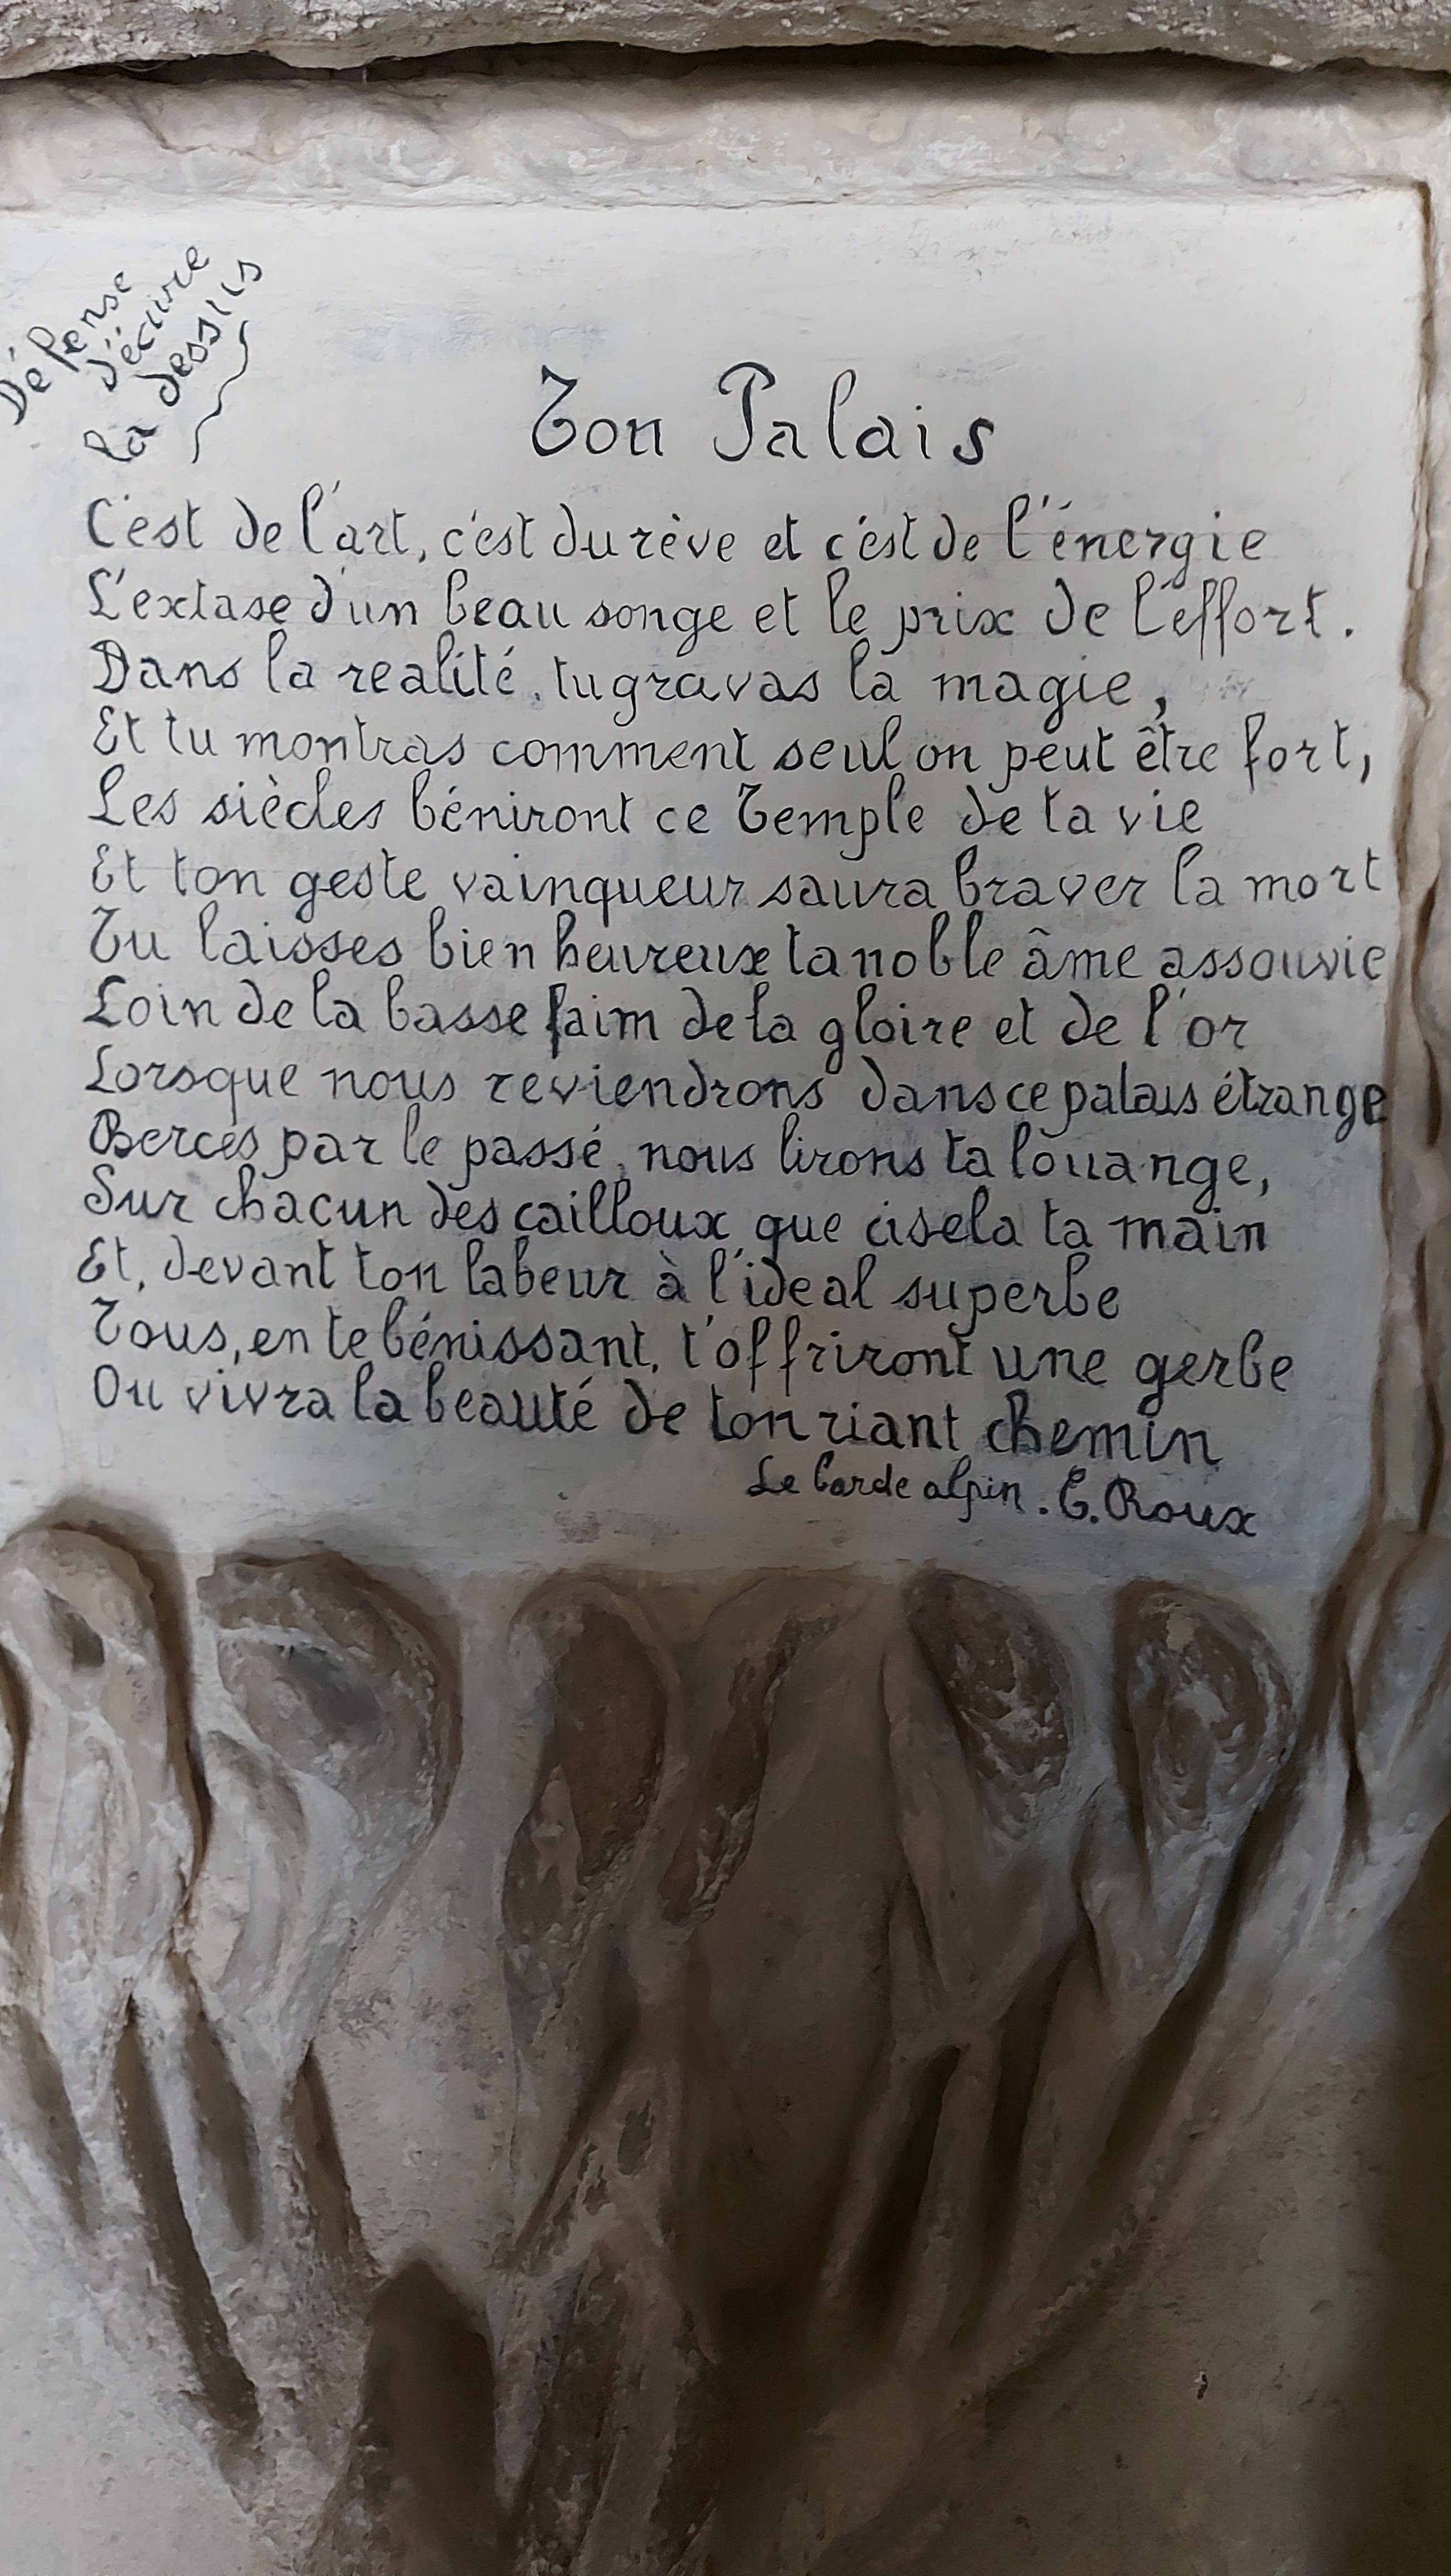 Défense
d'écrire
la dessus
Ton Palais
C'est de l'art, c'est du rêve et c'est de l'énergie
L'extase d'un beau songe et le prix de l'effort.
Dans la realité, tu gravas la magie,
Et tu montras comment seul on peut être fort,
Les siècles béniront ce Temple de ta vie
Et ton geste vainqueur saura braver la mort
Tu laisses bien heureux ta noble âme assouvie
Loin de la basse faim de la gloire et de l'or
Lorsque nous reviendrons dans ce palais étrange
Bercés par le passé, nous lirons ta louange,
Sur chacun des cailloux que cisela ta main
Et, devant ton labeur à l'ideal superbe
Tous, en te bénissant, t'offriront une gerbe
Ou vivra la beauté de ton riant chemin
Le barde alpin. E. Roux